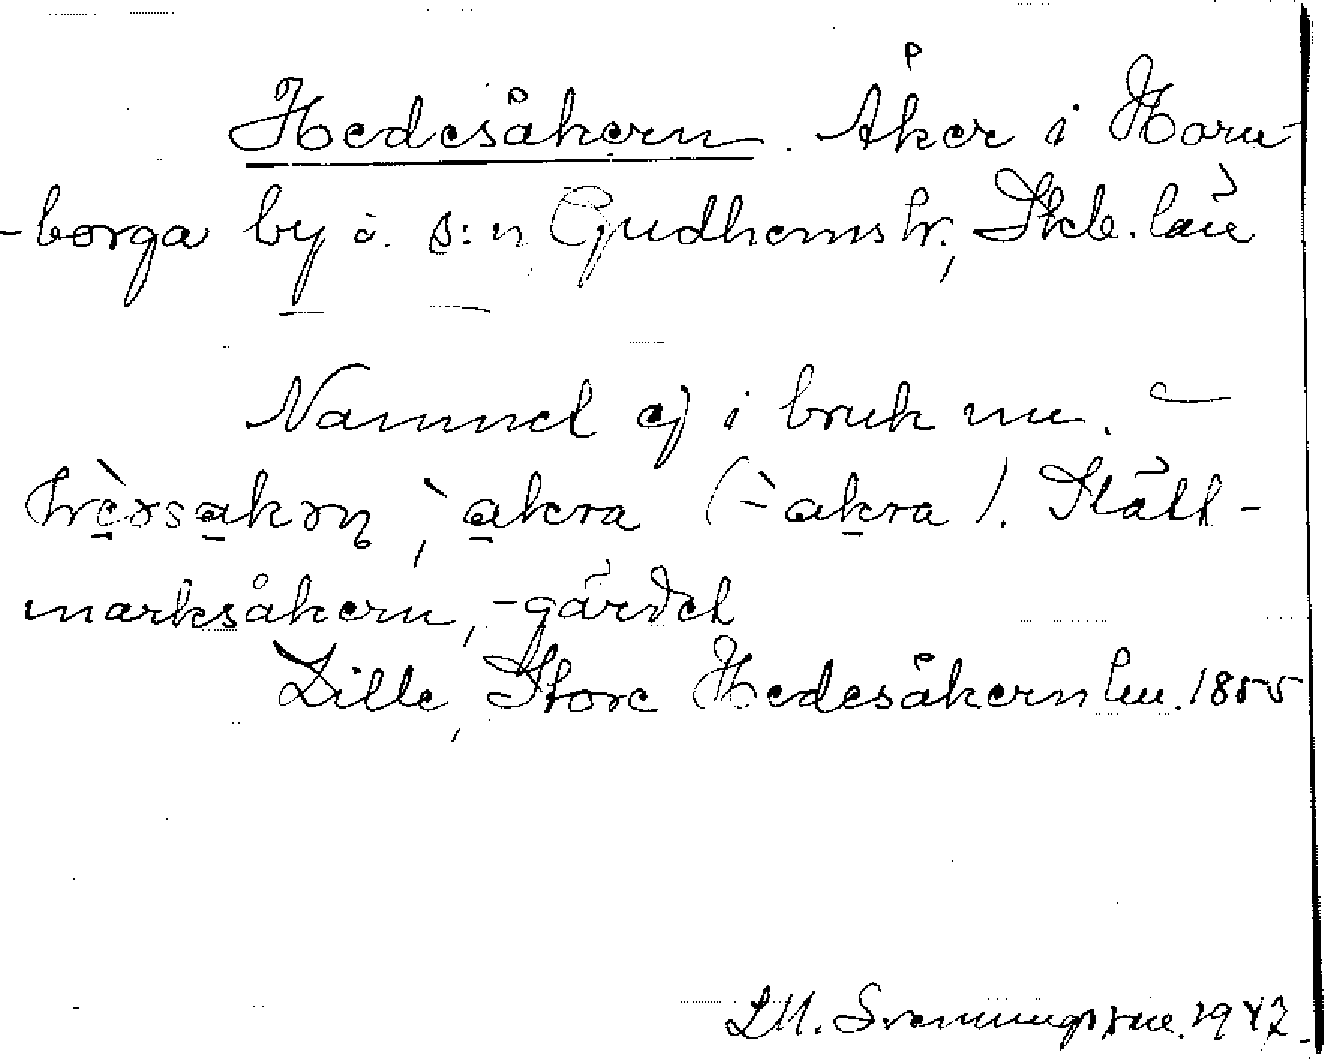 Hedesåkern. Åker i Horn-
-borga by o. s:n, Gudhems hr., Skb. län
Namnet ej i bruk nu. –
hrèrsakrn, `akra (-`akra). Slätt-
marksåkern, -gärdet
Lille, Store Hedesåkern lm. 1855
L.M. Svenningsson. 1947.